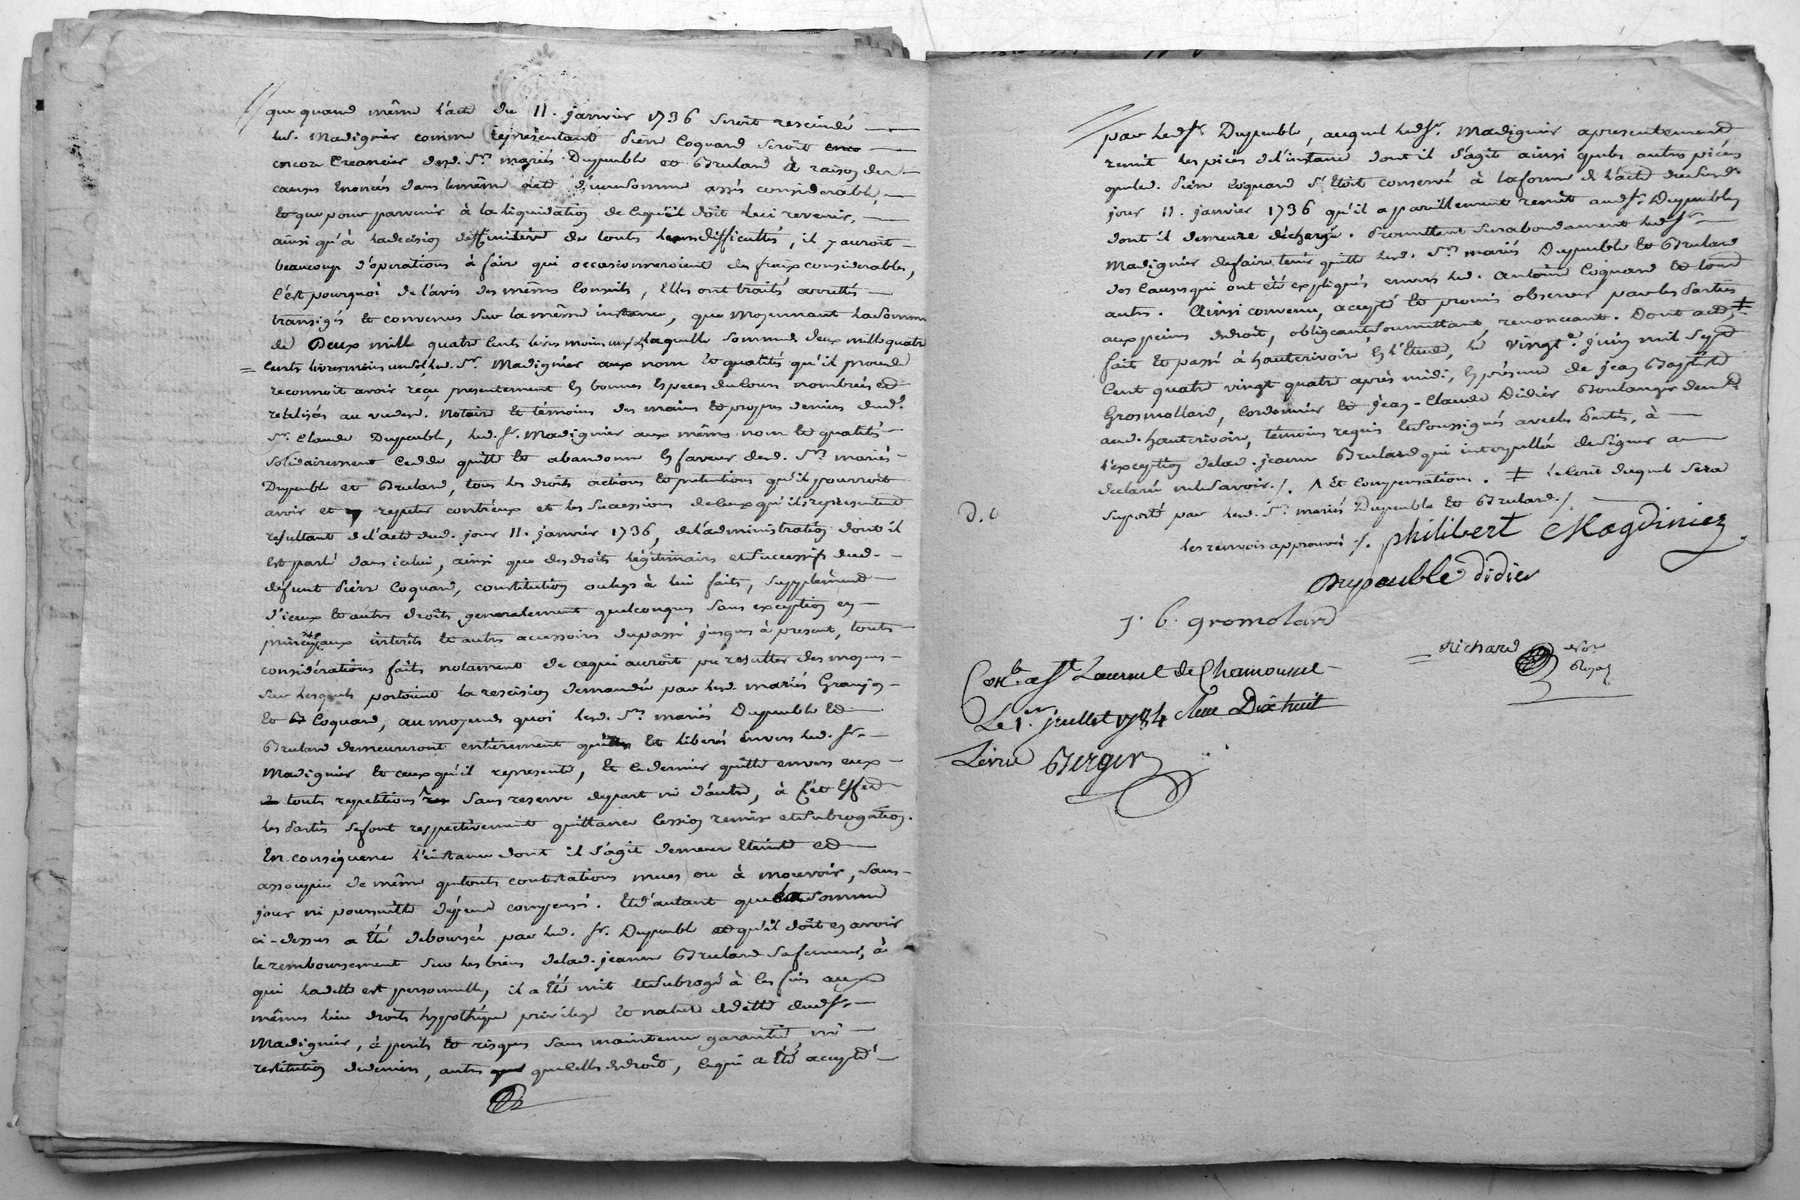 que quand même l'acte du 11. janvier 1736 seroit rescindé
led. Madignier comme représentant Pierre Coquard seroit
encore Créancier desd. Srs mariés Dupeuble et Bruland à raison des
causes énoncées dans le même acte d'une somme assés considerable,
et que pour parvenir à la liquidation de ce qu'il doit lui revenir,
ainsi qu'à la decision deffinitive de touts leurs difficultés, il y auroit
beaucoup d'operations à faire qui occasionneroient des fraix considerables,
c'est pourquoi de l'avis des mêmes Conseils, Elles ont traité arretté
transigé et convenu sur la même instance, que moyennant la somme
de Deux mille quatre Cents livres moins un sol laquelle somme de deux mille quatre
Cents livres moins un sol led. Sr. Madignier aux nom et qualités qu'il procede
reconnoit avoir reçu presentement En bonnes Especes du Cours nombrées et
réalisés au vu desd. Notaire et témoins des mains et propres deniers dud.
Sr. Claude Dupeuble, led. Sr. Madignier aux mêmes nom et qualités
solidairement Cedde quitte et abandonne En faveur desd. Srs mariés
Dupeuble et Bruland, tous les droits actions et pretentions qu'il pourroit
avoir et repeter contr'eux et les successions de Ceux qu'ils représentent
resultant de l'acte dud. jour 11. janvier 1736, de l'administration dont il
Est parlé dans icelui, ainsi que des droits légitimaires et successifs dud.
défunt Pierre Coquard, constitution ou legs à lui faits, supplèment
d'iceux et autres droits generalement quelconques sans exception en
principaux interêts et autres accessoires du passé jusques à present, touts
considérations faits notament de ce qui auroit pu resulter des moyens
sur lesquels portoient la rescision demandée par led. mariés Granjon
et Coquard, au moyende quoi lesd. Srs mariés Dupeuble et
Bruland demeureront entièrement quittes et liberés Envers led. Sr.
Madignier et ceux qu'il represente, et ce dernier quitte envers eux
touts repetitions sans reserve de part ni d'autre, à Cet Effet
les Parties se font respectivement quittance Cession remise et subrogation.
En conséquence l'instance dont il s'agit demeure Eteinte et
assoupie de même que touts contestations mues ou à mouvoir, sans
jour ni poursuitte dépens compensés. Et d'autant que la somme
ci-dessus a Eté deboursée par led. Sr. Dupeuble et qu'il doit en avoir
le remboursement sur les biens de lad. jeanne Bruland sa femme, à
qui la dette est personnelle, il a Eté mit et subrogé à Ces fins aux
mêmes lieu droits hypothéque privilege et nature de dette dud. Sr.
Madignier, à perils et risques sans maintenue garantie ni
restitution de deniers, autres que celles de droit, ce qui a Eté accepté
par led. Sr. Dupeuble, auquel led. Sr. Madignier a presentement
remit les pièces de l'instance dont il s'agit ainsi que les autres pièces
que led. Pierre Coquard s'Etoit conservé à la forme de l'acte du susd.
jour 11. janvier 1736 qu'il a pareillement remit aud. Sr. Dupeuble,
dont il demeure déchargé. Promettant surabondament led. Sr.
Madignier de faire tenir quitte lesd. Srs mariés Dupeuble et Bruland
des Causes qui ont été expliqués envers led. Antoine Coquard et tous
autres. Ainsi convenu, accepté et promis observer par les Parties
aux peines de droit, obligeant, soumettant, renonceant. Dont acte ‡
fait et passé à hauterivoire En l'Etude, le vingt. juin mil sept
Cent quatre vingt quatre après midi, En présence de jean Baptiste
Grosmollard, Cordonnier et jean-Claude Didier Boulanger demt.
aud. hauterivoire, témoins requis et soussignés avec les Parties, à
l'exception de lad. jeanne Bruland qui interpellée de signer a
declaré ne le savoir./. Λ et Compensations. ‡ le Coût duquel sera
suporté par lesd. Srs mariés Dupeuble et Bruland./.
D. C
les renvois approuvés ./. philibert Magdinier
Dupeuble Didier
J. B. gromolard
Richard Not. Royal
Contlé a St Laurent de Chamousset
Le 1er juillet 1784 Reçu Dix huit
Livres Berger